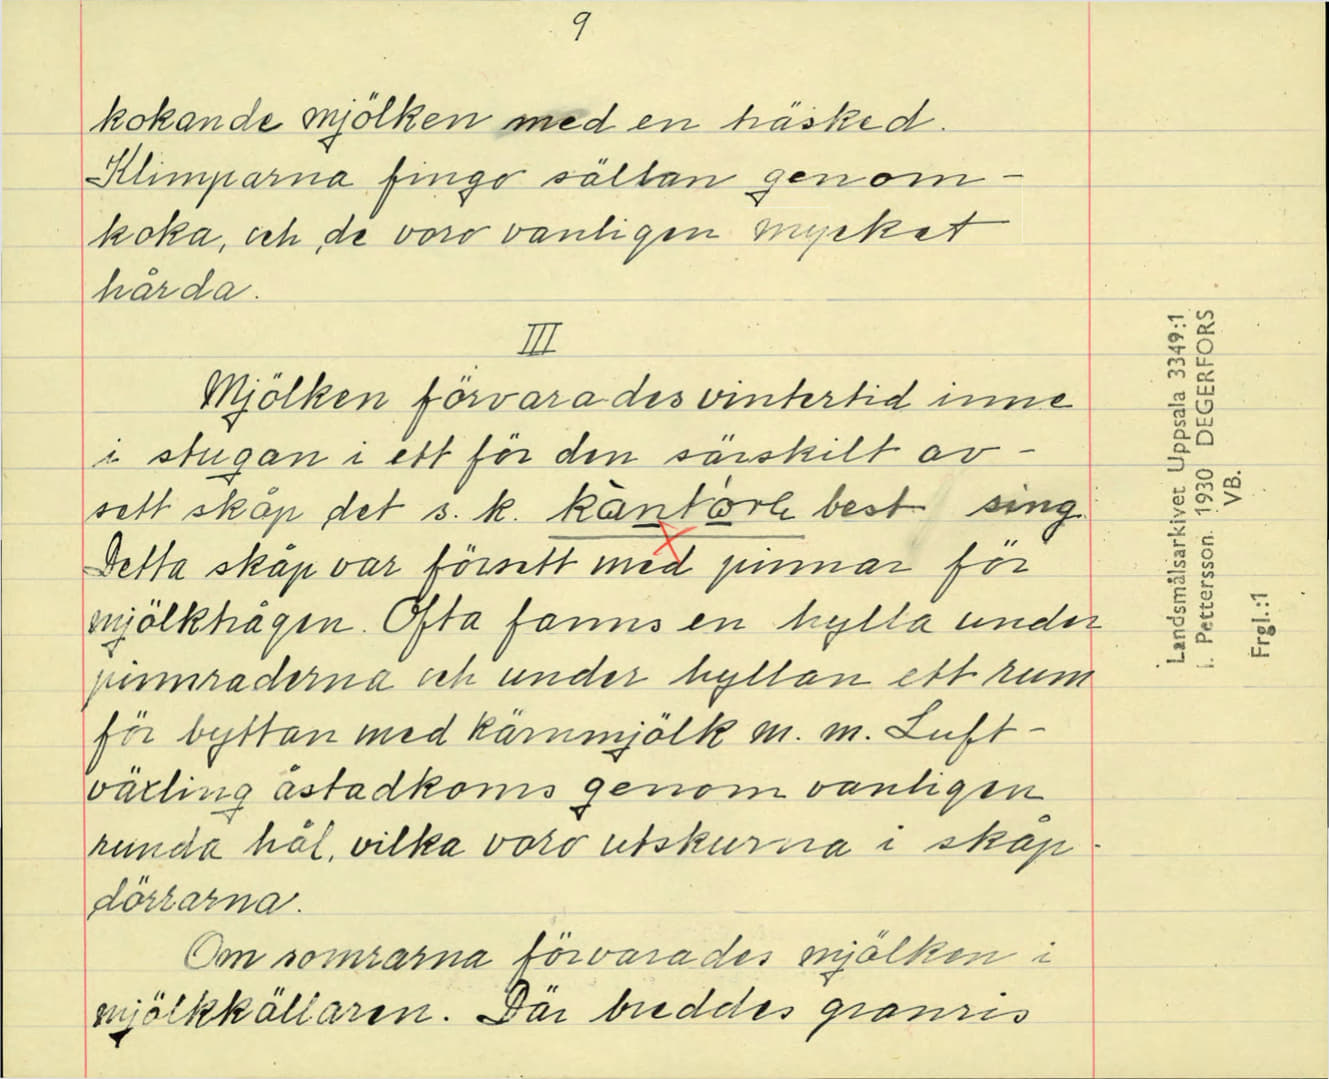 9
kokande mjölken med en träsked.
Klimparna fingo sällan genom-
koka, och de voro vanligen mycket
hårda.
III
Mjölken förvarades vintertid inne
i stugan i ett för den särskilt av-
sett skåp det s. k. best sing.
Detta skåp var försett med pinnar för
mjölktrågen. Ofta fanns en hylla under
pinnraderna och under hyllan ett rum
för byttan med kärnmjölk m. m. Luft-
växling åstadkoms genom vanligen
runda hål, vilka voro utskurna i skåp-
dörrarna.
Om somrarna förvarades mjölken i
mjölkkällaren. Där breddes granris
Landsmålsarkivet Uppsala 3349:1
I. Pettersson. 1930 DEGERFORS
VB.
Frgl.:1